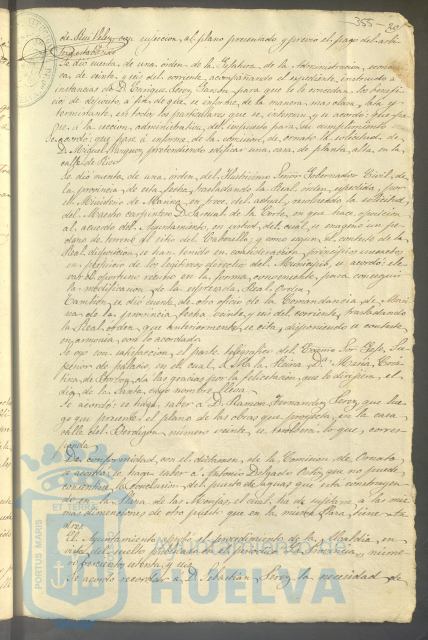 355 - 20
de Ruiz Vélez con sujeccion al plano presentado y previo el pago del arbi-
trio establecido
Se dió cuenta de una órden de la Jefatura de la Administracion econó-
mica de veinte y seis del corriente, acompañando el expediente instruido á
instancia de D. Enrique Perez para que le se concedan los benefi-
cios de depósito, á fin de que se informe de la manera mas clara y
terminante, en todos los particulares que se interesan y se acordó: que pa-
se á la seccion administrativa del impuesto para su cumplimiento
Se acordó: que pase á informe de la comision de ornato la solicitud de
D. Miguel Marquez, pretendiendo edificar una casa de planta alta en la
calle de Rico
Se dió cuenta de una órden del Ilustrísimo Señor Gobernador Civil de
la provincia de esta fecha, trasladando la Real órden expedida por
el Ministerio de Marina en trece del actual, resolviendo la solicitud
del Maestro carpintero D. Pascual de la Torre, en que hace oposicion
al acuerdo del Ayuntamiento, en virtud del cual se enagenó un pe-
dazo de terreno al sitio del y como segun el contesto de la
Real disposicion se han tenido en consideracion principios inexactos
en perjuicio de los legítimos derechos del Municipio, se acordó: ele-
var el oportuno escrito en la forma conveniente, para conseguir
la modificacion de la espresada Real órden
Tambien se dió cuenta de otro oficio de la Comandancia de Mari-
na de la provincia fecha veinte y seis del corriente, trasladando
la Real órden que anteriormente se cita, disponiendo se conteste
en armonía con lo acordado
Se oyó con satisfaccion el parte telegráfico del Excmo Sor Jefe Su-
perior de palacio, en el cual S. M. la Reina Dª María Cris-
tina de Borbon, da las gracias por la felicitacion que le dirijiera el
dia de la Santa cuyo nombre lleva
Se acordó: se haga saber á D. Ramon Fernandez Perez que lue-
go que presente el plano de las obras que proyecta en la casa
calle del Berdigon número veinte, se resolverá lo que corres-
ponda
De conformidad con el dictámen de la Comision de Ornato
se acordó: se haga saber á Antonio Delgado Ortiz que no puede
consentirse la conclusion del puesto de aguas que está construyen-
do en la Plaza de las Monjas, el cual ha de sujetarse á las mis-
mas dimensiones de otro puesto que en la misma Plaza tiene
El Ayuntamiento aprobó el procedimiento de la Alcaldía, en
vista del suelto publicado en el periódico La Provincia, núme-
ro
Se acordó recordar á D. Sebastian Perez la necesidad de
PORTUS MARIS
ET TERRAE
Ayuntamiento de
HUELVA